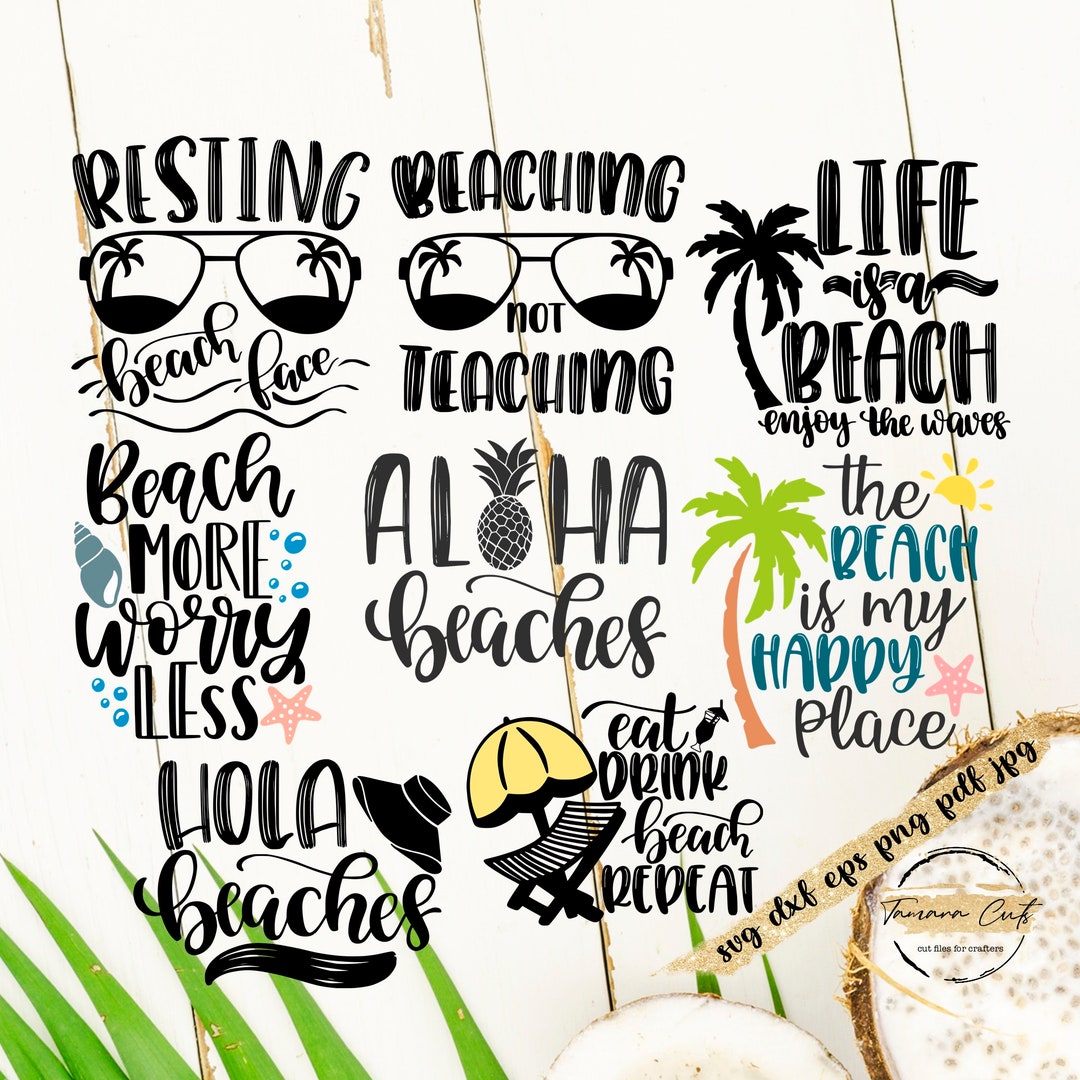 RESTING
beach face
BEACHING
NOT
TEACHING
LIFE
is a
BEACH
enjoy the waves
Beach
MORE
worry
LESS
ALOHA
beaches
the
BEACH
is my
HAPPY
place
HOLA
beaches
eat
DRINK
beach
REPEAT
svg dxf eps png pdf jpg
Tamana Cuts
cut files for crafters